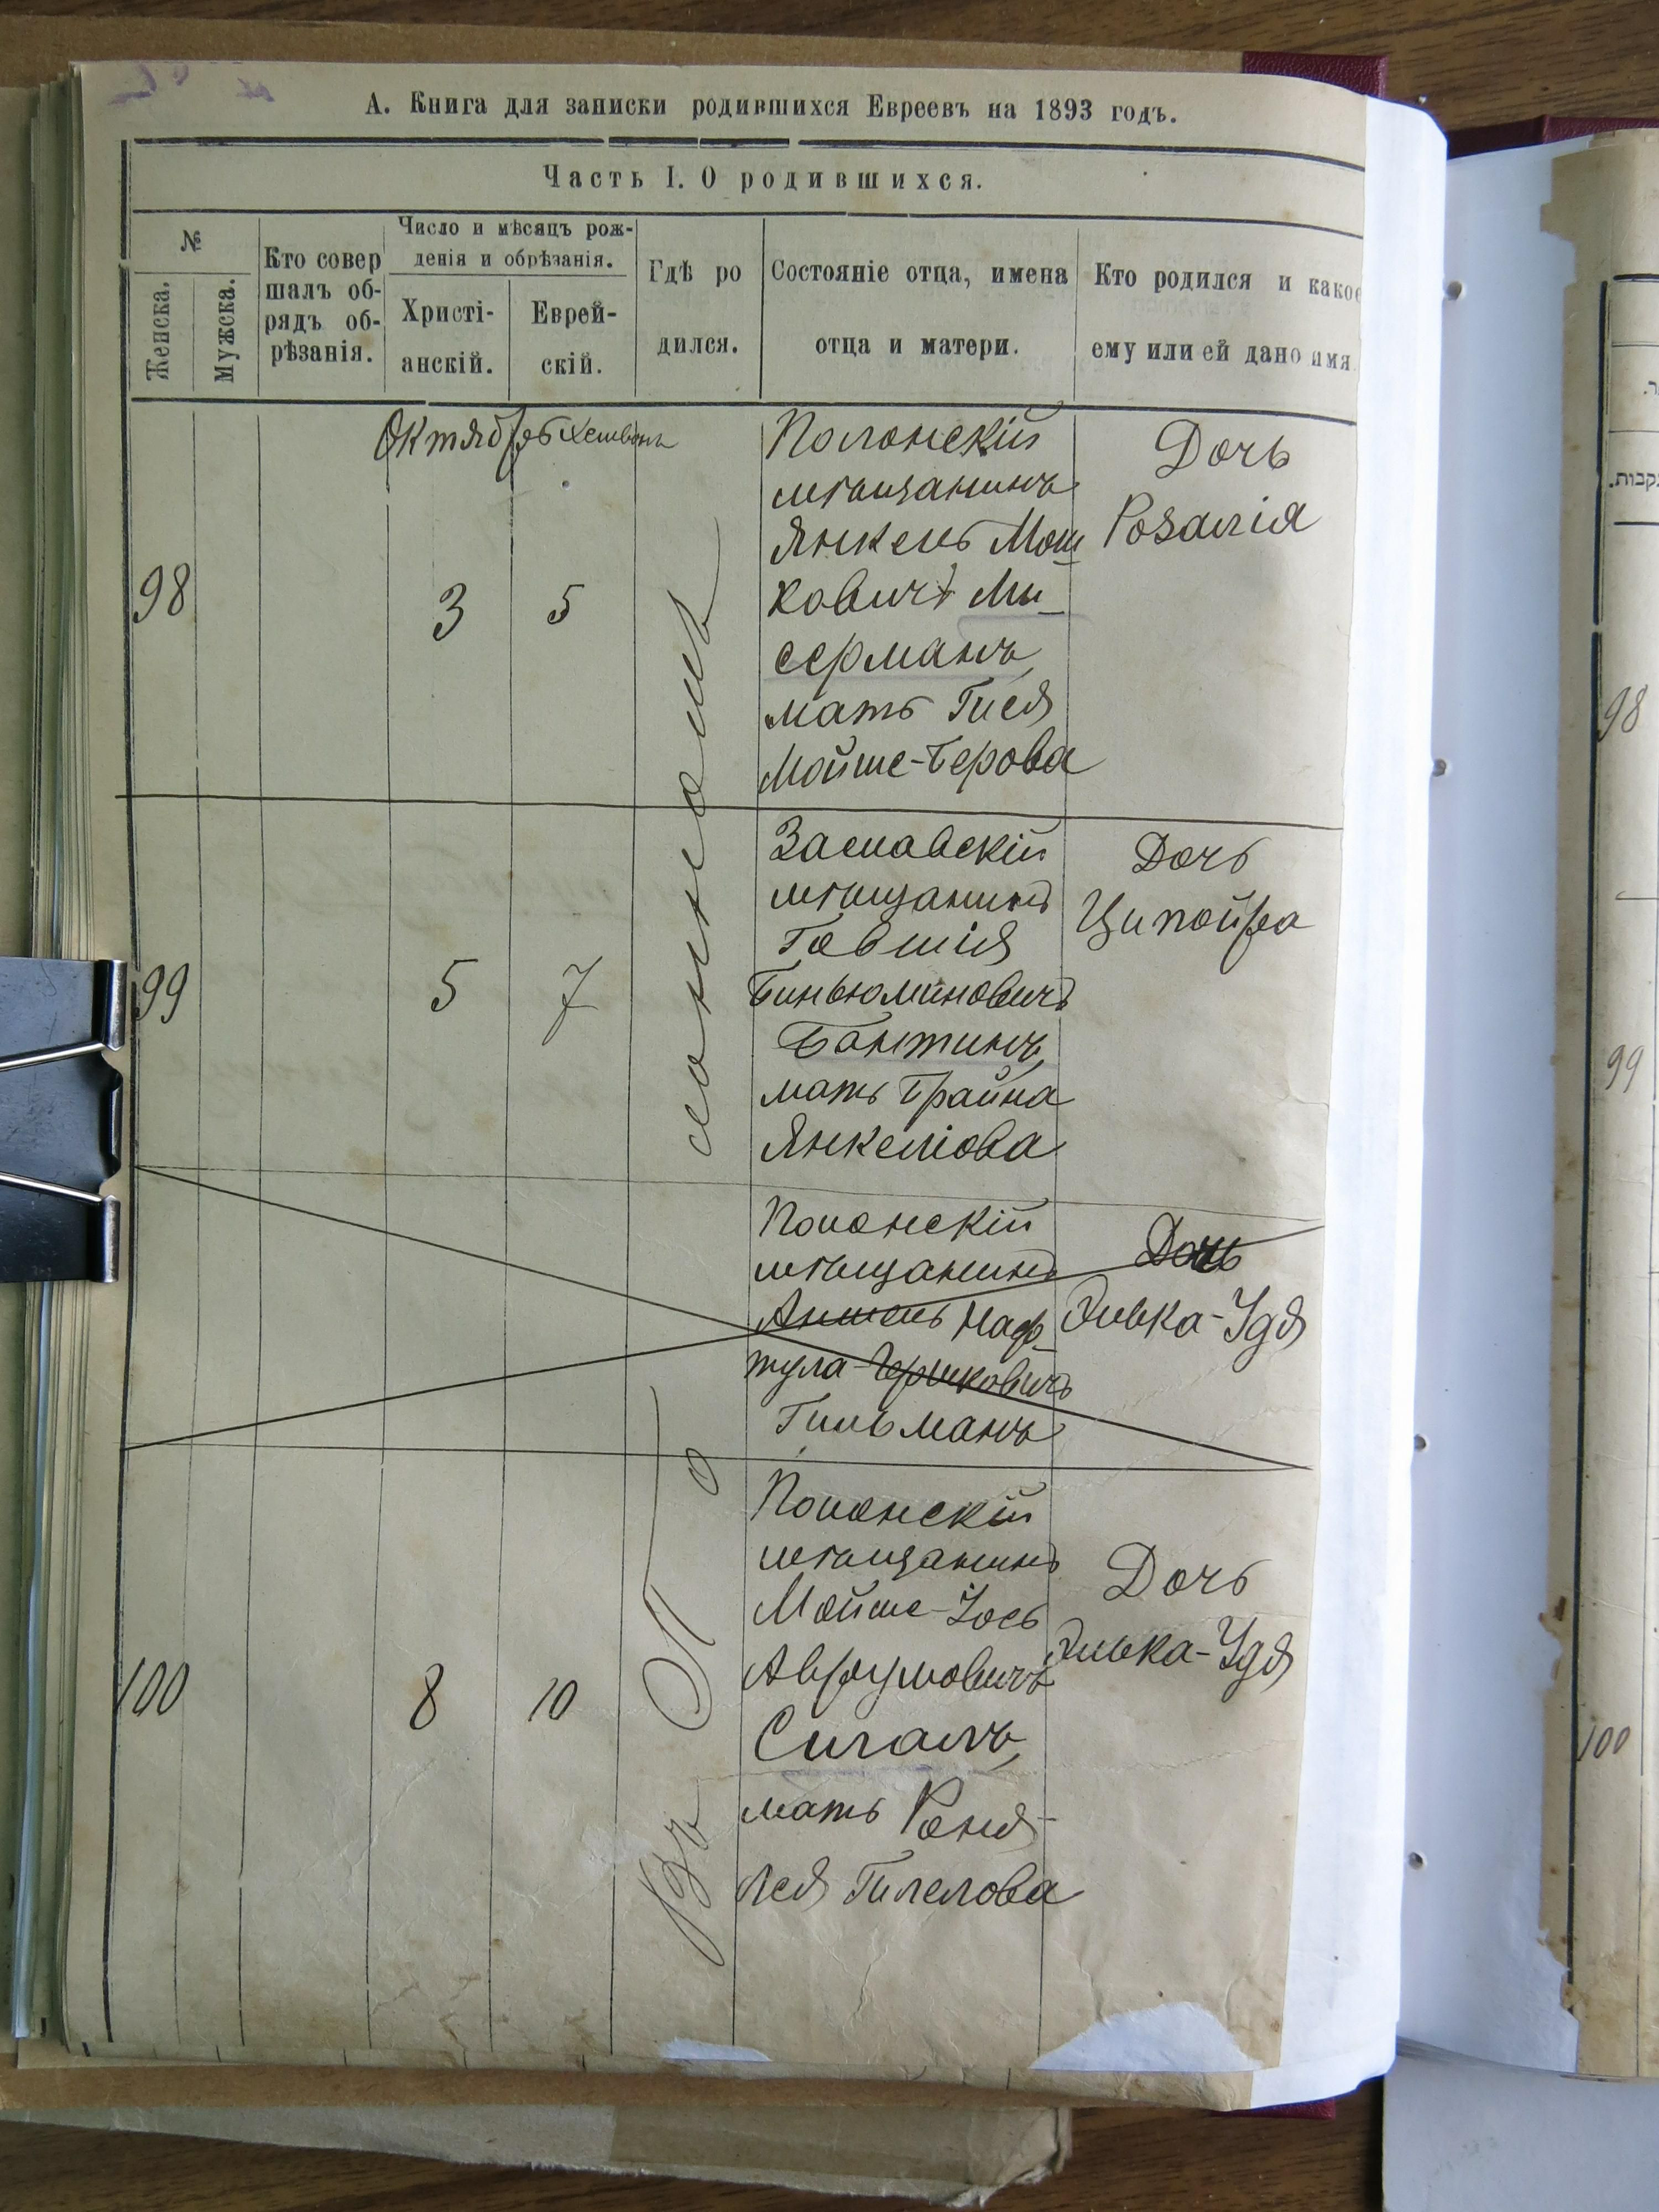 А. Книга для записки родившихся Евреевъ на 1893 годъ.
Часть I. О родившихся.
№
Женска.
Мужска.
Кто совер
шалъ об-
рядъ об-
рѣзанія.
Число и мѣсяцъ рож-
денія и обрѣзанія.
Христі-
анскій.
Еврей-
скій.
Гдѣ ро
дился.
Состояніе отца, имена
отца и матери.
Кто родился и какое
ему или ей дано имя.
Октябрь Хешвонъ
98
3
5
Полонскій
мѣщанинъ
Янкель Мош
ковичъ Ми-
серманъ,
мать Гися
Мойше-Берова
Дочь
Розалія
99
5
7
Заславскій
мѣщанинъ
Говшія
Биньюминовичъ
Бантинъ,
мать Брайна
Янкеліова
Дочь
Ципойра
Полонскій
мѣщанинъ
Аншель Наф-
тула-Гершковичъ
Гильманъ
Дочь
Элька-Удя
100
8
10
Полонскій
мѣщанинъ
Мойше-Іось
Аврумовичъ
Сигалъ,
мать Роня-
Лея Гилелова
Дочь
Элька-Удя
Въ Полонномъ
98
99
100